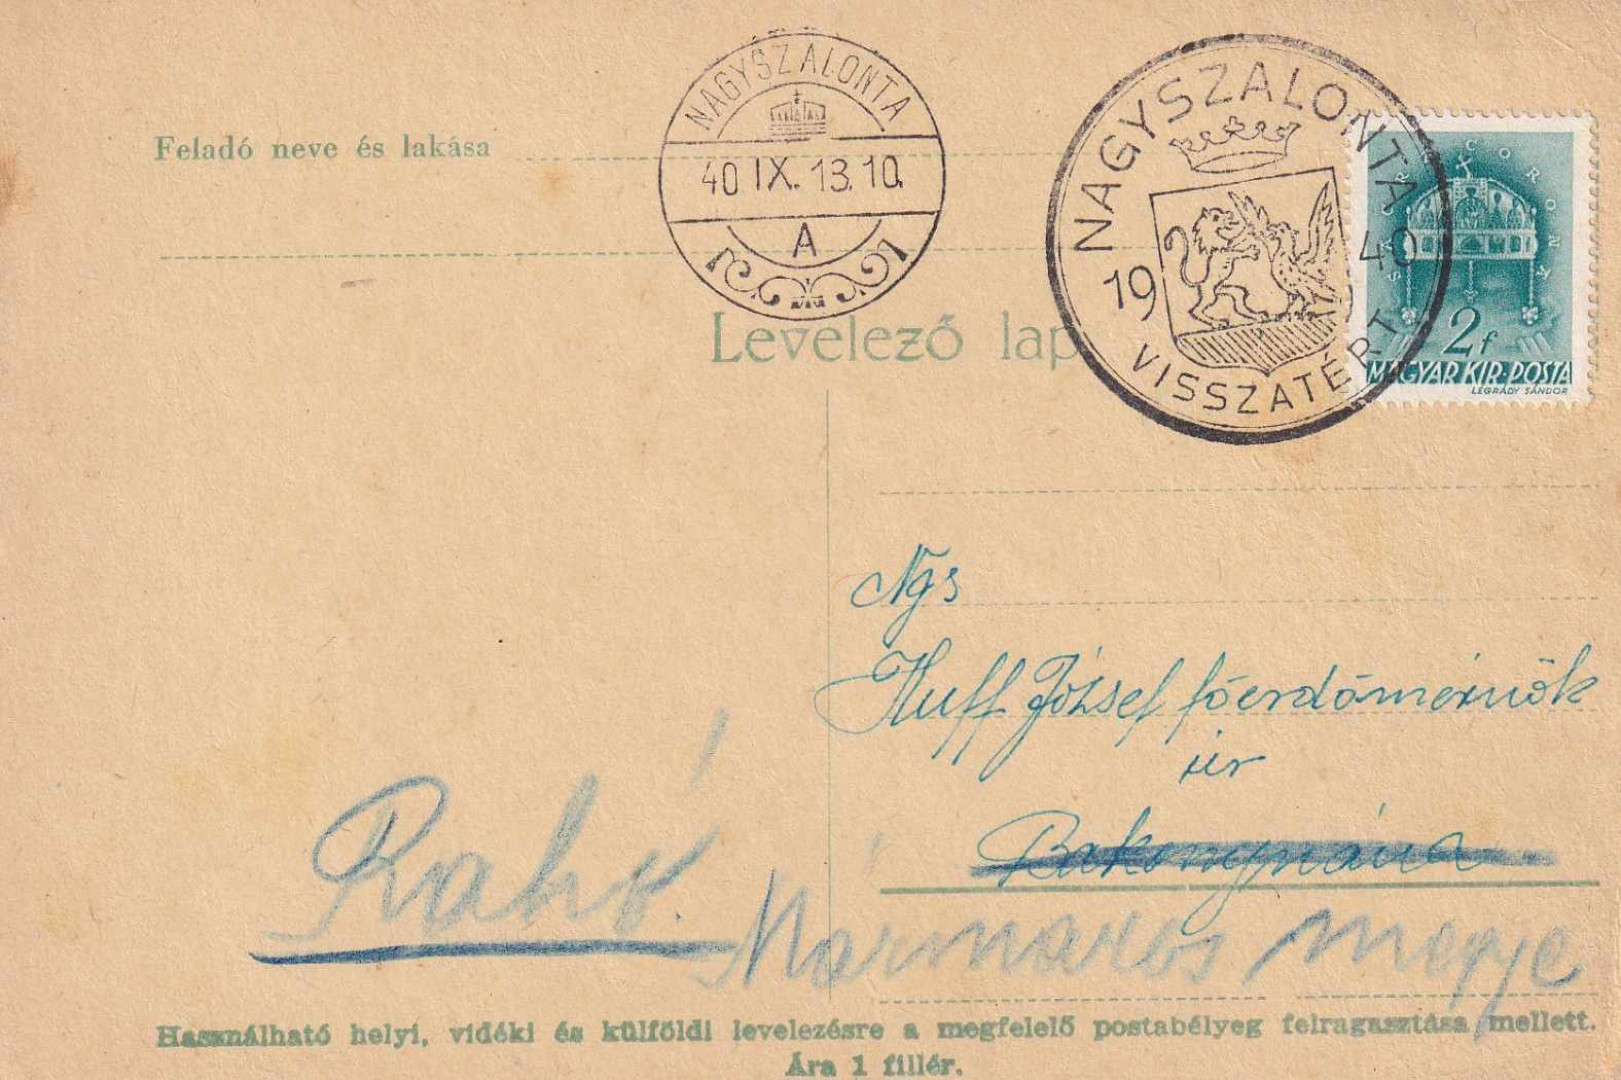 NAGYSZALONTA
40 IX. 13. 10.
A
NAGYSZALONTA
1940
VISSZATÉRT
SACRA CORONA
2f
MAGYAR KIR. POSTA
LÉGRÁDY SÁNDOR
Feladó neve és lakása
Levelező lap
Ngs
Huff József főerdőmérnök
úr
Bakonynána
Rahó!
Mármaros megye
Használható helyi, vidéki és külföldi levelezésre a megfelelő postabélyeg felragasztása mellett.
Ára 1 fillér.